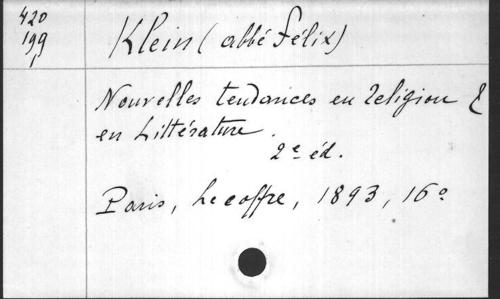 420
199
Klein (abbé Félix)
Nouvelles tendances en religion &
en Littérature.
2e éd.
Paris, Lecoffre, 1893, 16o